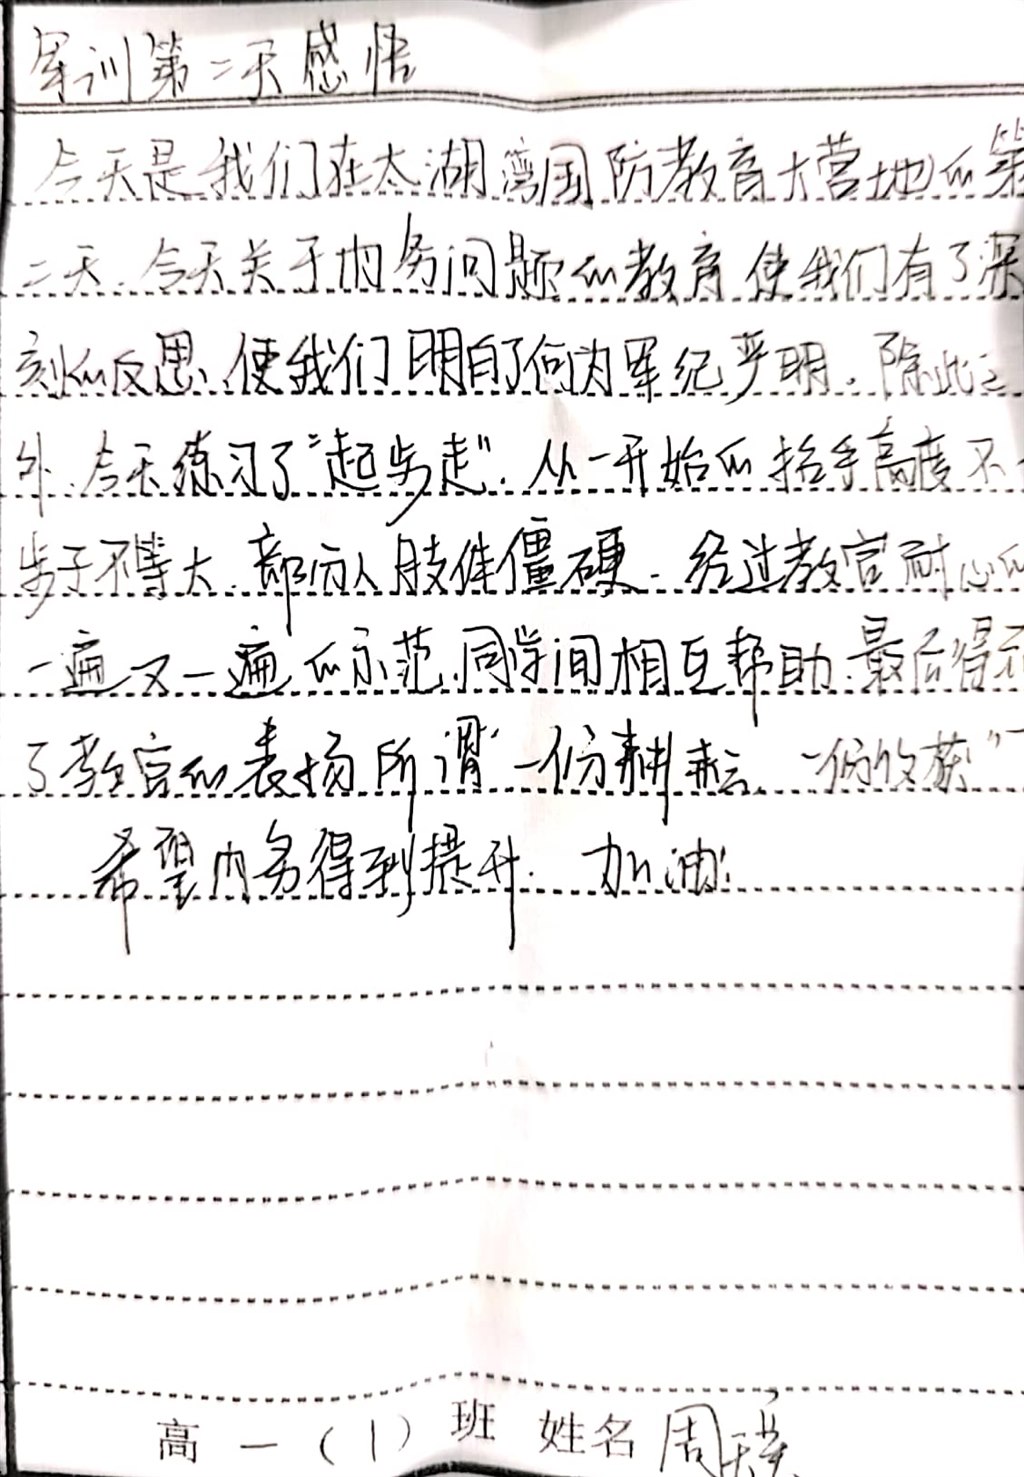 军训第二天感悟
今天是我们在太湖湾国防教育大营地的第
二天,今天关于内务问题的教育使我们有了深
刻的反思,使我们明白了何为军纪严明。除此之
外,今天练习了“起步走”,从一开始的抬手高度不
步子不等大,部分人肢体僵硬,经过教官耐心的
一遍又一遍的示范,同学间相互帮助,最后得到
了教官的表扬所谓“一份耕耘,一份收获”
希望内务得到提升,加油!
高一(1)班 姓名 周